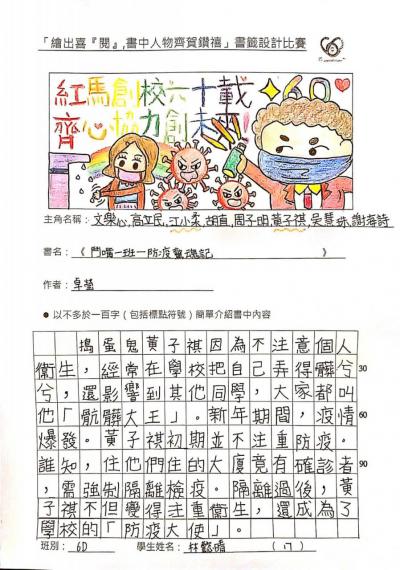 「繪出喜『閱』,書中人物齊賀鑽禧」書籤設計比賽
紅馬創校六十載
齊心協力創未來!
60
主角名稱：文樂心,高立民,江小柔,胡直,周子明,黃子祺,吳慧珠,謝海詩
書名：《 鬥嘴一班—防疫驚魂記 》
作者：卓瑩
● 以不多於一百字（包括標點符號）簡單介紹書中內容
搗蛋鬼黃子祺因為不注意個人
衞生，經常在學校把自己弄得髒兮 30
兮，還影響到其他同學，大家都叫
他「骯髒大王」。新年期間，疫情 60
爆發。黃子祺初期並不注重防疫。
誰知，住他們住的大廈竟有確診者 90
，需強制隔離檢疫。隔離過後，黃
子祺不但變得注重衞生，還成為了
學校的「防疫大使」。
班別： 6D 學生姓名： 林懿晴 ( 17 )